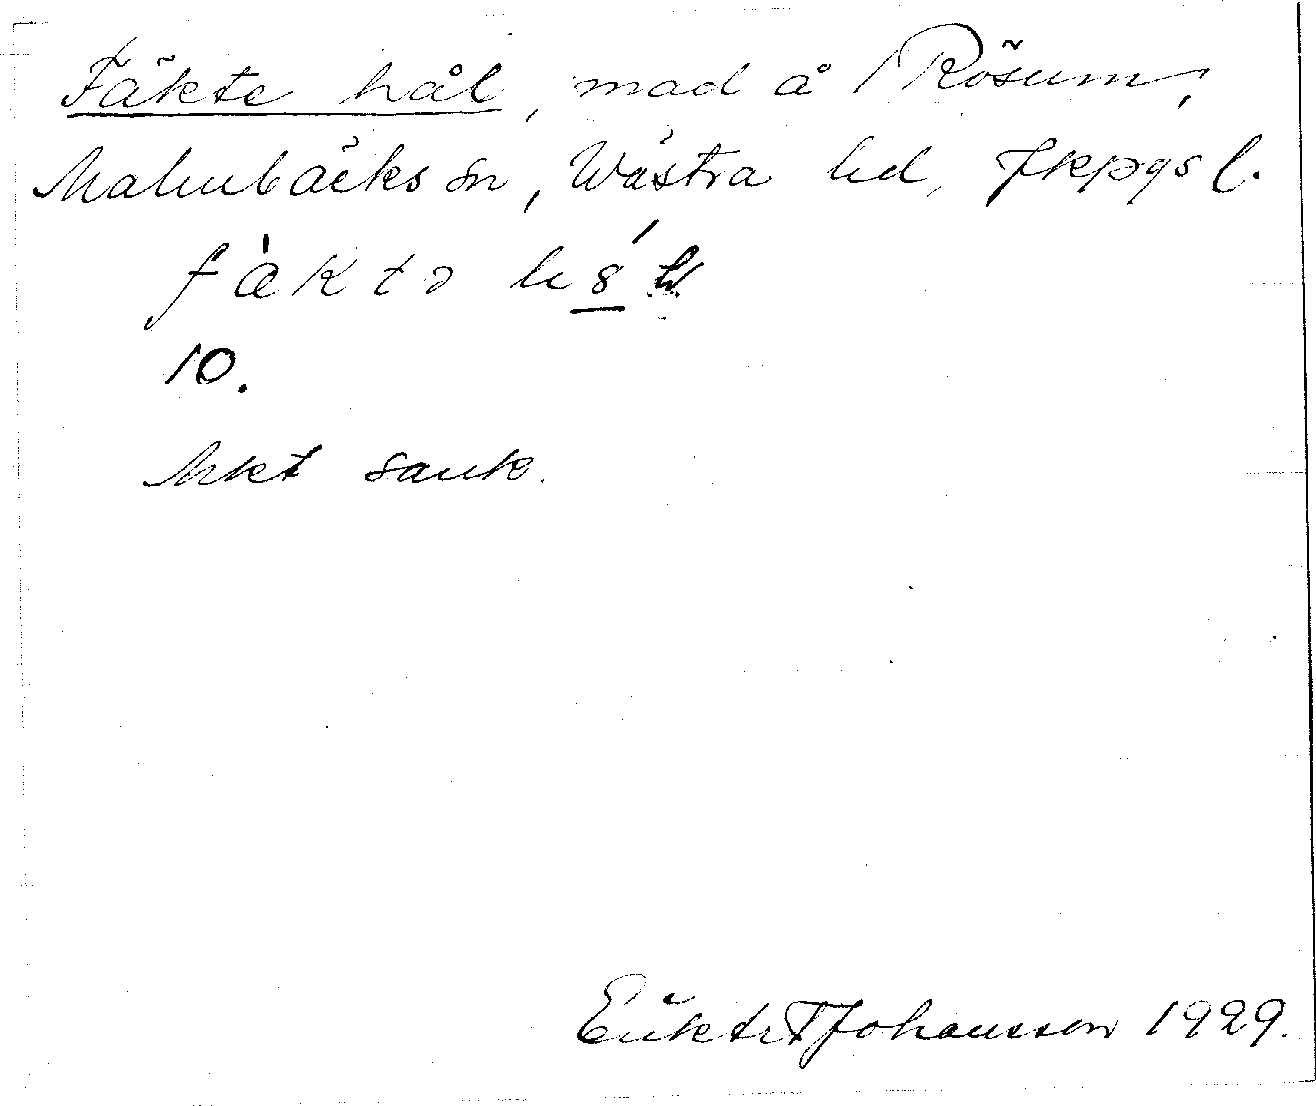 Fäkte hål, mad å Rösum,
Malmbäcks sn, Västra hd, Jkpgs l.
fàktə hsl
10.
Mkt sank.
Johansson 1929.